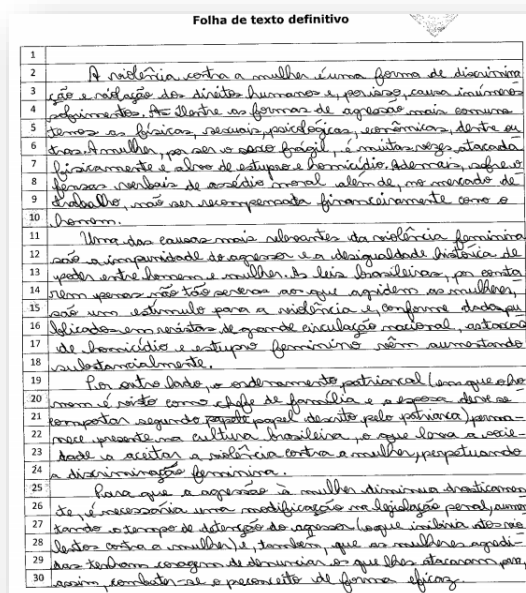 Folha de texto definitivo
1
2 A violência contra a mulher é uma forma de discrimina
3 ção e violação dos direitos humanos e, por isso, causa inúmeros
4 sofrimentos. As dentre as formas de agressão mais comuns
5 temos as físicas, sexuais, psicológicas, econômicas, dentre ou
6 tras. A mulher, por ser o sexo frágil, é muitas vezes atacada
7 fisicamente e alvo de estupro e homicídio. Ademais, sofre o
8 fensas verbais de assédio moral além de, no mercado de
9 trabalho, não ser recompensada financeiramente como o
10 homem.
11 Uma das causas mais relevantes da violência feminina
12 são a impunidade do agressor e a desigualdade histórica de
13 poder entre homem e mulher. As leis brasileiras, por conta
14 rem penas não tão severas aos que agridem as mulheres,
15 são um estímulo para a violência e, conforme dados pu
16 blicados em revistas de grande circulação nacional, as taxas
17 de homicídio e estupro feminino vêm aumentando
18 substancialmente.
19 Por outro lado, o ordenamento patriarcal (em que o ho
20 mem é visto como chefe de família e a esposa deve se
21 comportar segundo papel descrito pelo patriarca) perma-
22 nece presente na cultura brasileira, o que leva a socie
23 dade a aceitar a violência contra a mulher, perpetuando
24 a discriminação feminina.
25 Para que a agressão à mulher diminua drasticamen
26 te, é necessária uma modificação na legislação penal, aumen
27 tando o tempo de detenção do agressor (o que inibiria atos vio
28 lentos contra a mulher) e, também, que as mulheres agredi-
29 das tenham coragem de denunciar os que lhes atacaram para,
30 assim, combater-se o preconceito de forma eficaz.